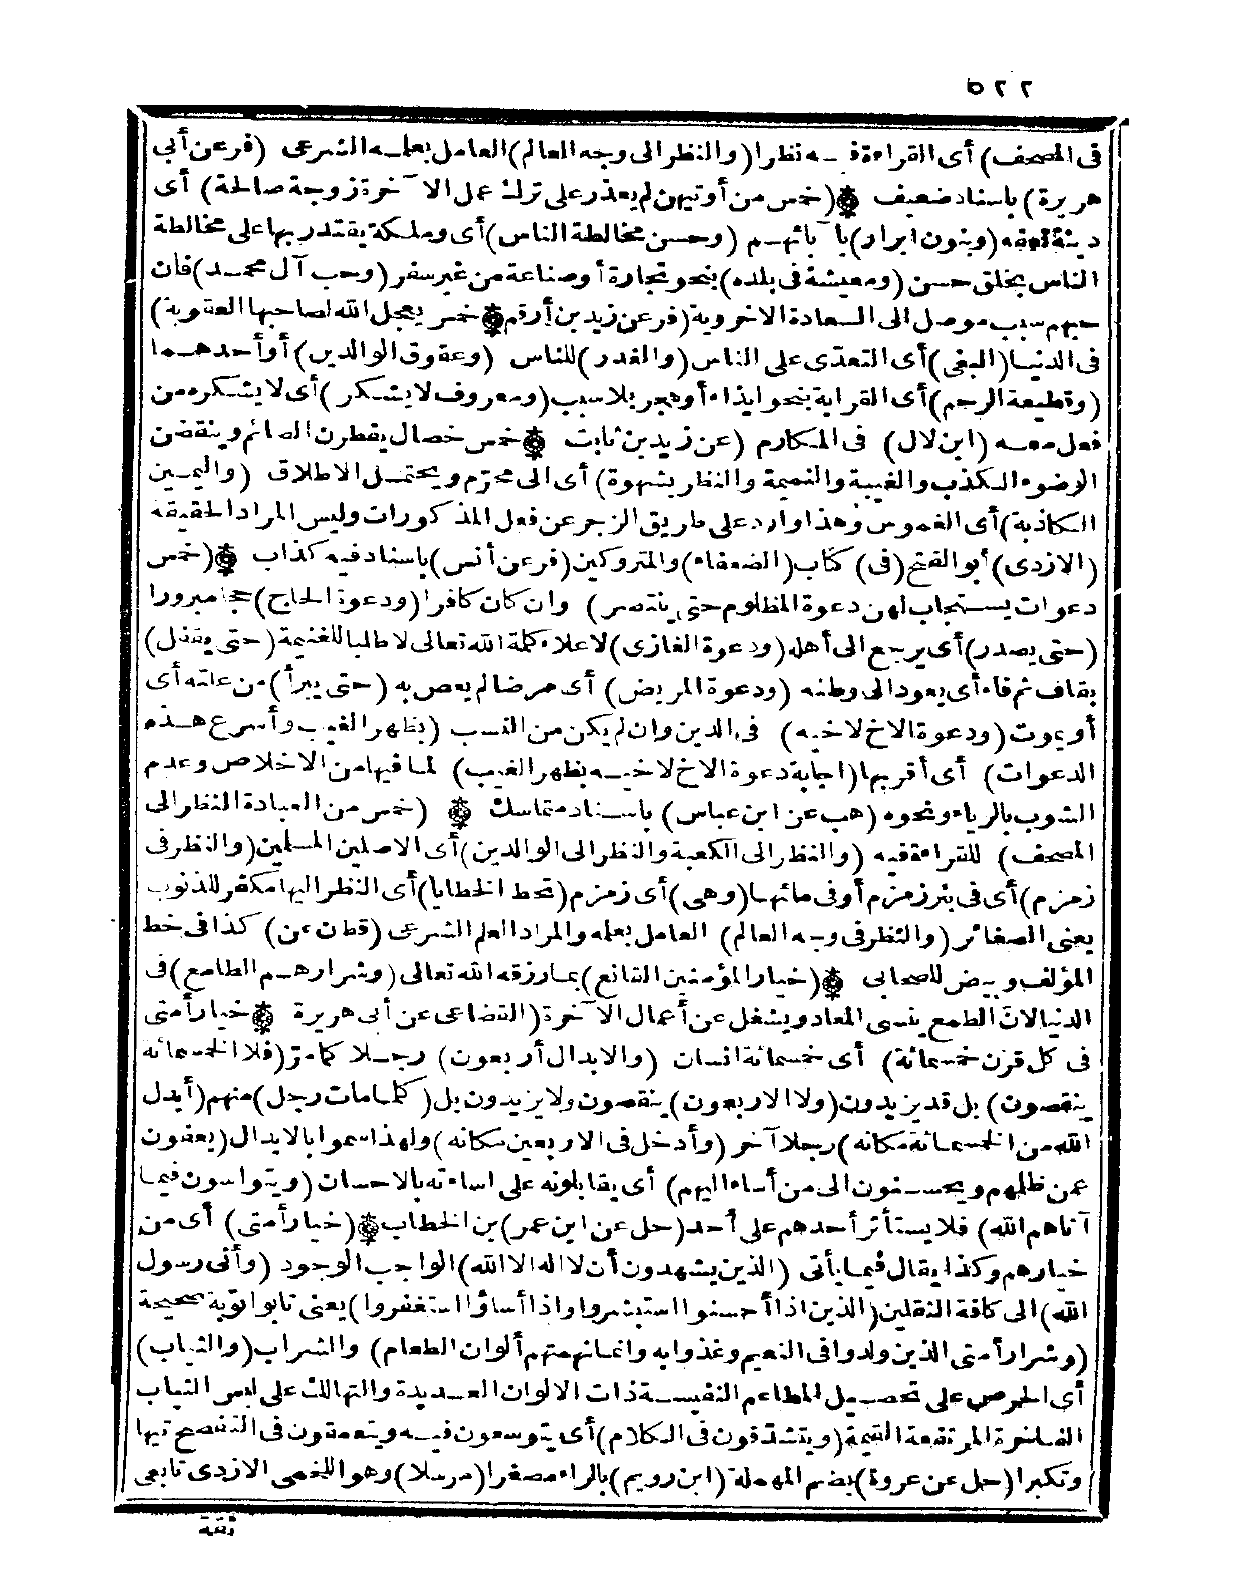 ٥٢٢
فى المصحف) أى القراءة فيه نظرا (والنظر الى وجه العالم) العامل بعلمه الشرعى (فر عن أبى
هريرة) باسناد ضعيف ۞ (خمس من أوتيهن لم يعذر على ترك عمل الآخرة زوجة صالحة) أى
دينة (وبنون ابرار) بآبائهم (وحسن مخالطة الناس) أى وملكة يقتدر بها على مخالطة
الناس بخلق حسن (ومعيشة فى بلده) بنحو تجارة أو صناعة من غير سفر (وحب آل محمد) فان
حبهم سبب موصل الى السعادة الاخروية (فر عن زيد بن أرقم ۞ خمس يعجل الله لصاحبها العقوبة)
فى الدنيا (البغى) أى التعدى على الناس (والغدر) للناس (وعقوق الوالدين) أو أحدهما
(وقطيعة الرحم) أى القرابة بنحو ايذاء أو هجر بلا سبب (ومعروف لا يشكر) أى لا يشكره من
فعل معه (ابن لال) فى المكارم (عن زيد بن ثابت ۞ خمس خصال يفطرن الصائم وينقضن
الوضوء الكذب والغيبة والنميمة والنظر بشهوة) أى الى محرم ويحتمل الاطلاق (واليمين
الكاذبة) أى الغموس وهذا وارد على طريق الزجر عن فعل المذكورات وليس المراد الحقيقة
(الازدى) أبو الفتح (فى) كتاب (الضعفاء) والمتروكين (فر عن أنس) باسناد فيه كذاب ۞ (خمس
دعوات يستجاب لهن دعوة المظلوم حتى ينتصر) وان كان كافرا (ودعوة الحاج) حجا مبرورا
(حتى يصدر) أى يرجع الى أهله (ودعوة الغازى) لاعلاء كلمة الله تعالى لا طالبا للغنيمة (حتى يقفل)
بقاف ثم فاء أى يعود الى وطنه (ودعوة المريض) أى مرضا لم يعص به (حتى يبرأ) من علته أى
أو يموت (ودعوة الاخ لاخيه) فى الدين وان لم يكن من النسب (بظهر الغيب وأسرع هذه
الدعوات) أى أقربها (اجابة دعوة الاخ لاخيه بظهر الغيب) لما فيها من الاخلاص وعدم
الشوب بالرياء ونحوه (هب عن ابن عباس) باسناد متماسك ۞ (خمس من العبادة النظر الى
المصحف) للقراءة فيه (والنظر الى الكعبة والنظر الى الوالدين) أى الاصلين المسلمين (والنظر فى
زمزم) أى فى بئر زمزم أو فى مائها (وهى) أى زمزم (تحط الخطايا) أى النظر اليها مكفر للذنوب
يعنى الصغائر (والنظر فى وجه العالم) العامل بعلمه والمراد العلم الشرعى (قط ن عن) كذا فى خط
المؤلف وبيض للصحابى ۞ (خيار المؤمنين القانع) بما رزقه الله تعالى (وشرارهم الطامع) فى
الدنيا لان الطمع ينسى المعاد ويشغل عن أعمال الآخرة (القضاعى عن أبى هريرة ۞ خيار أمتى
فى كل قرن خمسمائة) أى خمسمائة انسان (والابدال أربعون) رجلا كما مر (فلا الخمسمائة
ينقصون) بل قد يزيدون (ولا الاربعون) ينقصون ولا يزيدون بل (كلما مات رجل) منهم (أبدل
الله من الخمسمائة مكانه) رجلا آخر (وأدخل فى الاربعين مكانه) ولهذا سموا بالابدال (يعفون
عمن ظلمهم ويحسنون الى من أساء اليهم) أى يقابلونه على اساءته بالاحسان (ويتواسون فيما
آتاهم الله) فلا يستأثر أحدهم على أحد (حل عن ابن عمر) بن الخطاب ۞ (خيار أمتى) أى من
خيارهم وكذا يقال فيما يأتى (الذين يشهدون أن لا اله الا الله) الواجب الوجود (وأنى رسول
الله) الى كافة الثقلين (الذين اذا أحسنوا استبشروا واذا أساؤا استغفروا) يعنى تابوا توبة صحيحة
(وشرار أمتى الذين ولدوا فى النعيم وغذوا به وانما نهمتهم ألوان الطعام) والشراب (والثياب)
أى الحرص على تحصيل المطاعم النفيسة ذات الالوان العديدة والتهالك على لبس الثياب
الفاخرة المرتفعة القيمة (ويتشدقون فى الكلام) أى يتوسعون فيه ويتعمقون فى التفصح تيها
وتكبرا (حل عن عروة) بضم المهملة (ابن رويم) بالراء مصغرا (مرسلا) وهو اللخمى الازدى تابعى
ثقة